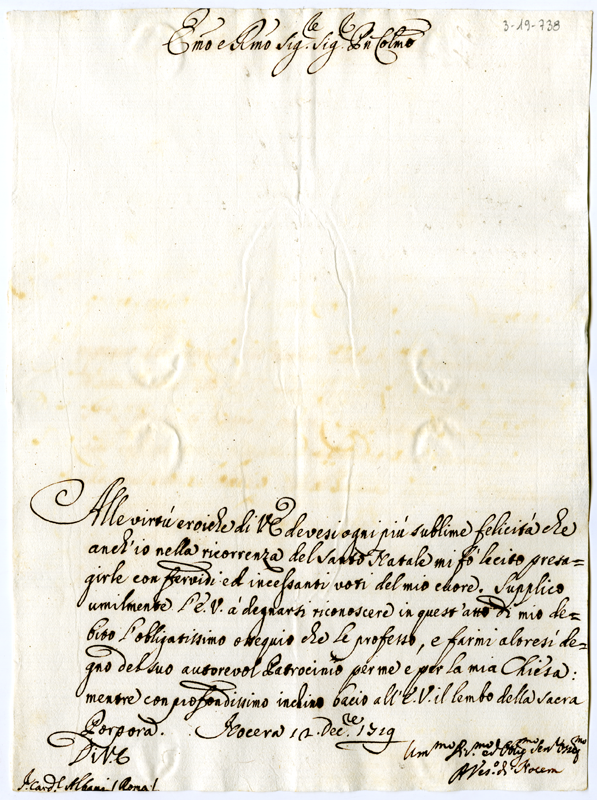 3-19-738
Emo e Rmo Sigre Sigr Pn Colmo
Alle virtù eroiche di VE devesi ogni più sublime felicità che
anch'io nella ricorrenza del Santo Natale mi fò lecito presa=
girle con fervidi ed incessanti voti del mio cuore. Supplico
umilmente l'E.V. à degnarsi riconoscere in quest'atto di mio de=
bito l'obligatissimo ossequio che le professo, e farmi altresì de=
gno del suo autorevol Patrocinio per me e per la mia Chiesa:
mentre con profondissimo inchino bacio all'E.V. il lembo della sacra
Porpora. Nocera 12. Decre 1719
Di VE
Ummo Divmo ed Oblmo Servre
Il Veso di Nocera
Card.l Albani (Roma)